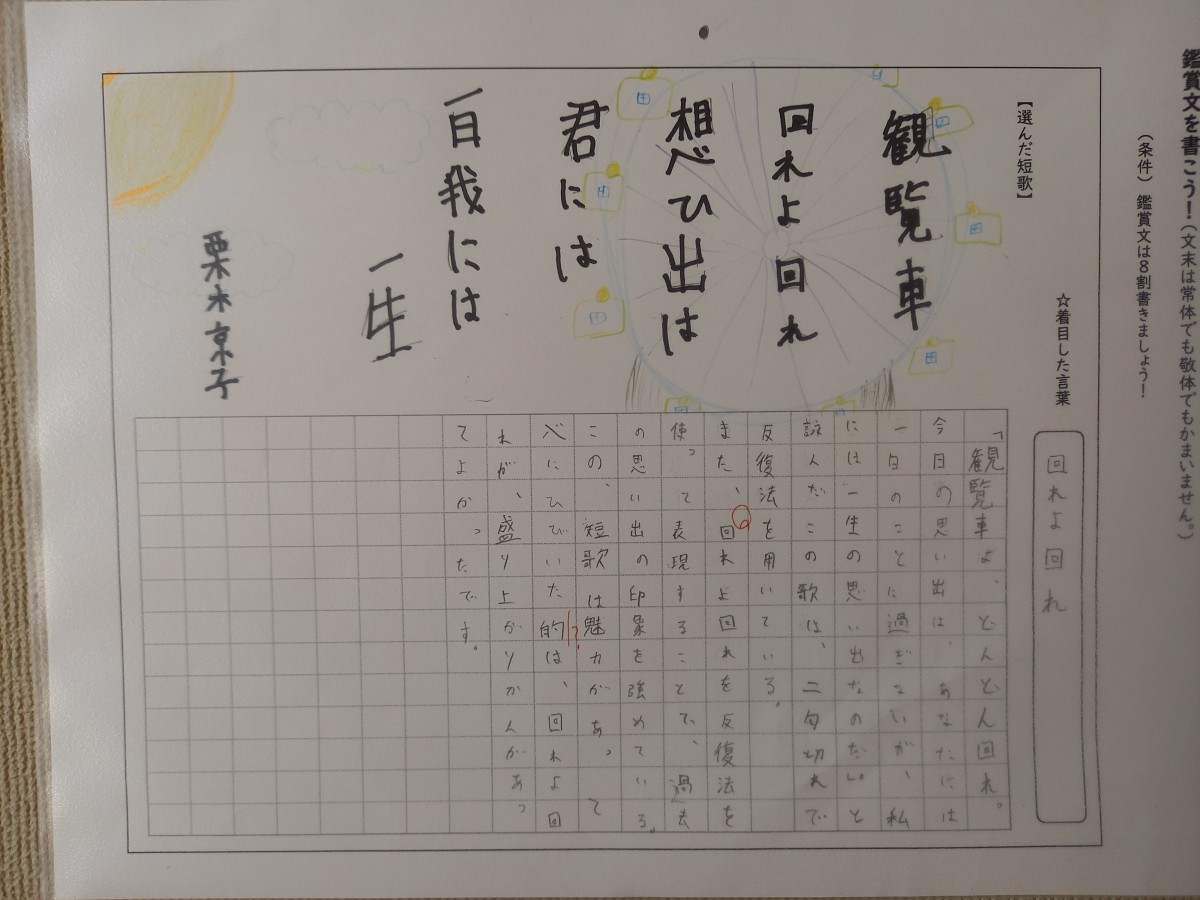 鑑賞文を書こう！（文末は常体でも敬体でもかまいません。）
（条件）鑑賞文は８割書きましょう！
☆着目した言葉
回れよ回れ
【選んだ短歌】
観覧車
回れよ回れ
想ひ出は
君には
一日我には
一生
栗木京子
「観覧車よ、どんどん回れ。
今日の思い出は、あなたには
一日のことに過ぎないが、私
には一生の思い出なのだ。」と
詠んだこの歌は、二句切れで
反復法を用いている。
また、回れよ回れを反復法を
使って表現することで、過去
の思い出の印象を強めている。
この、短歌は魅力があって
べにひびいた的は、回れよ回
れが、盛り上がりかんがあっ
てよかったです。
?